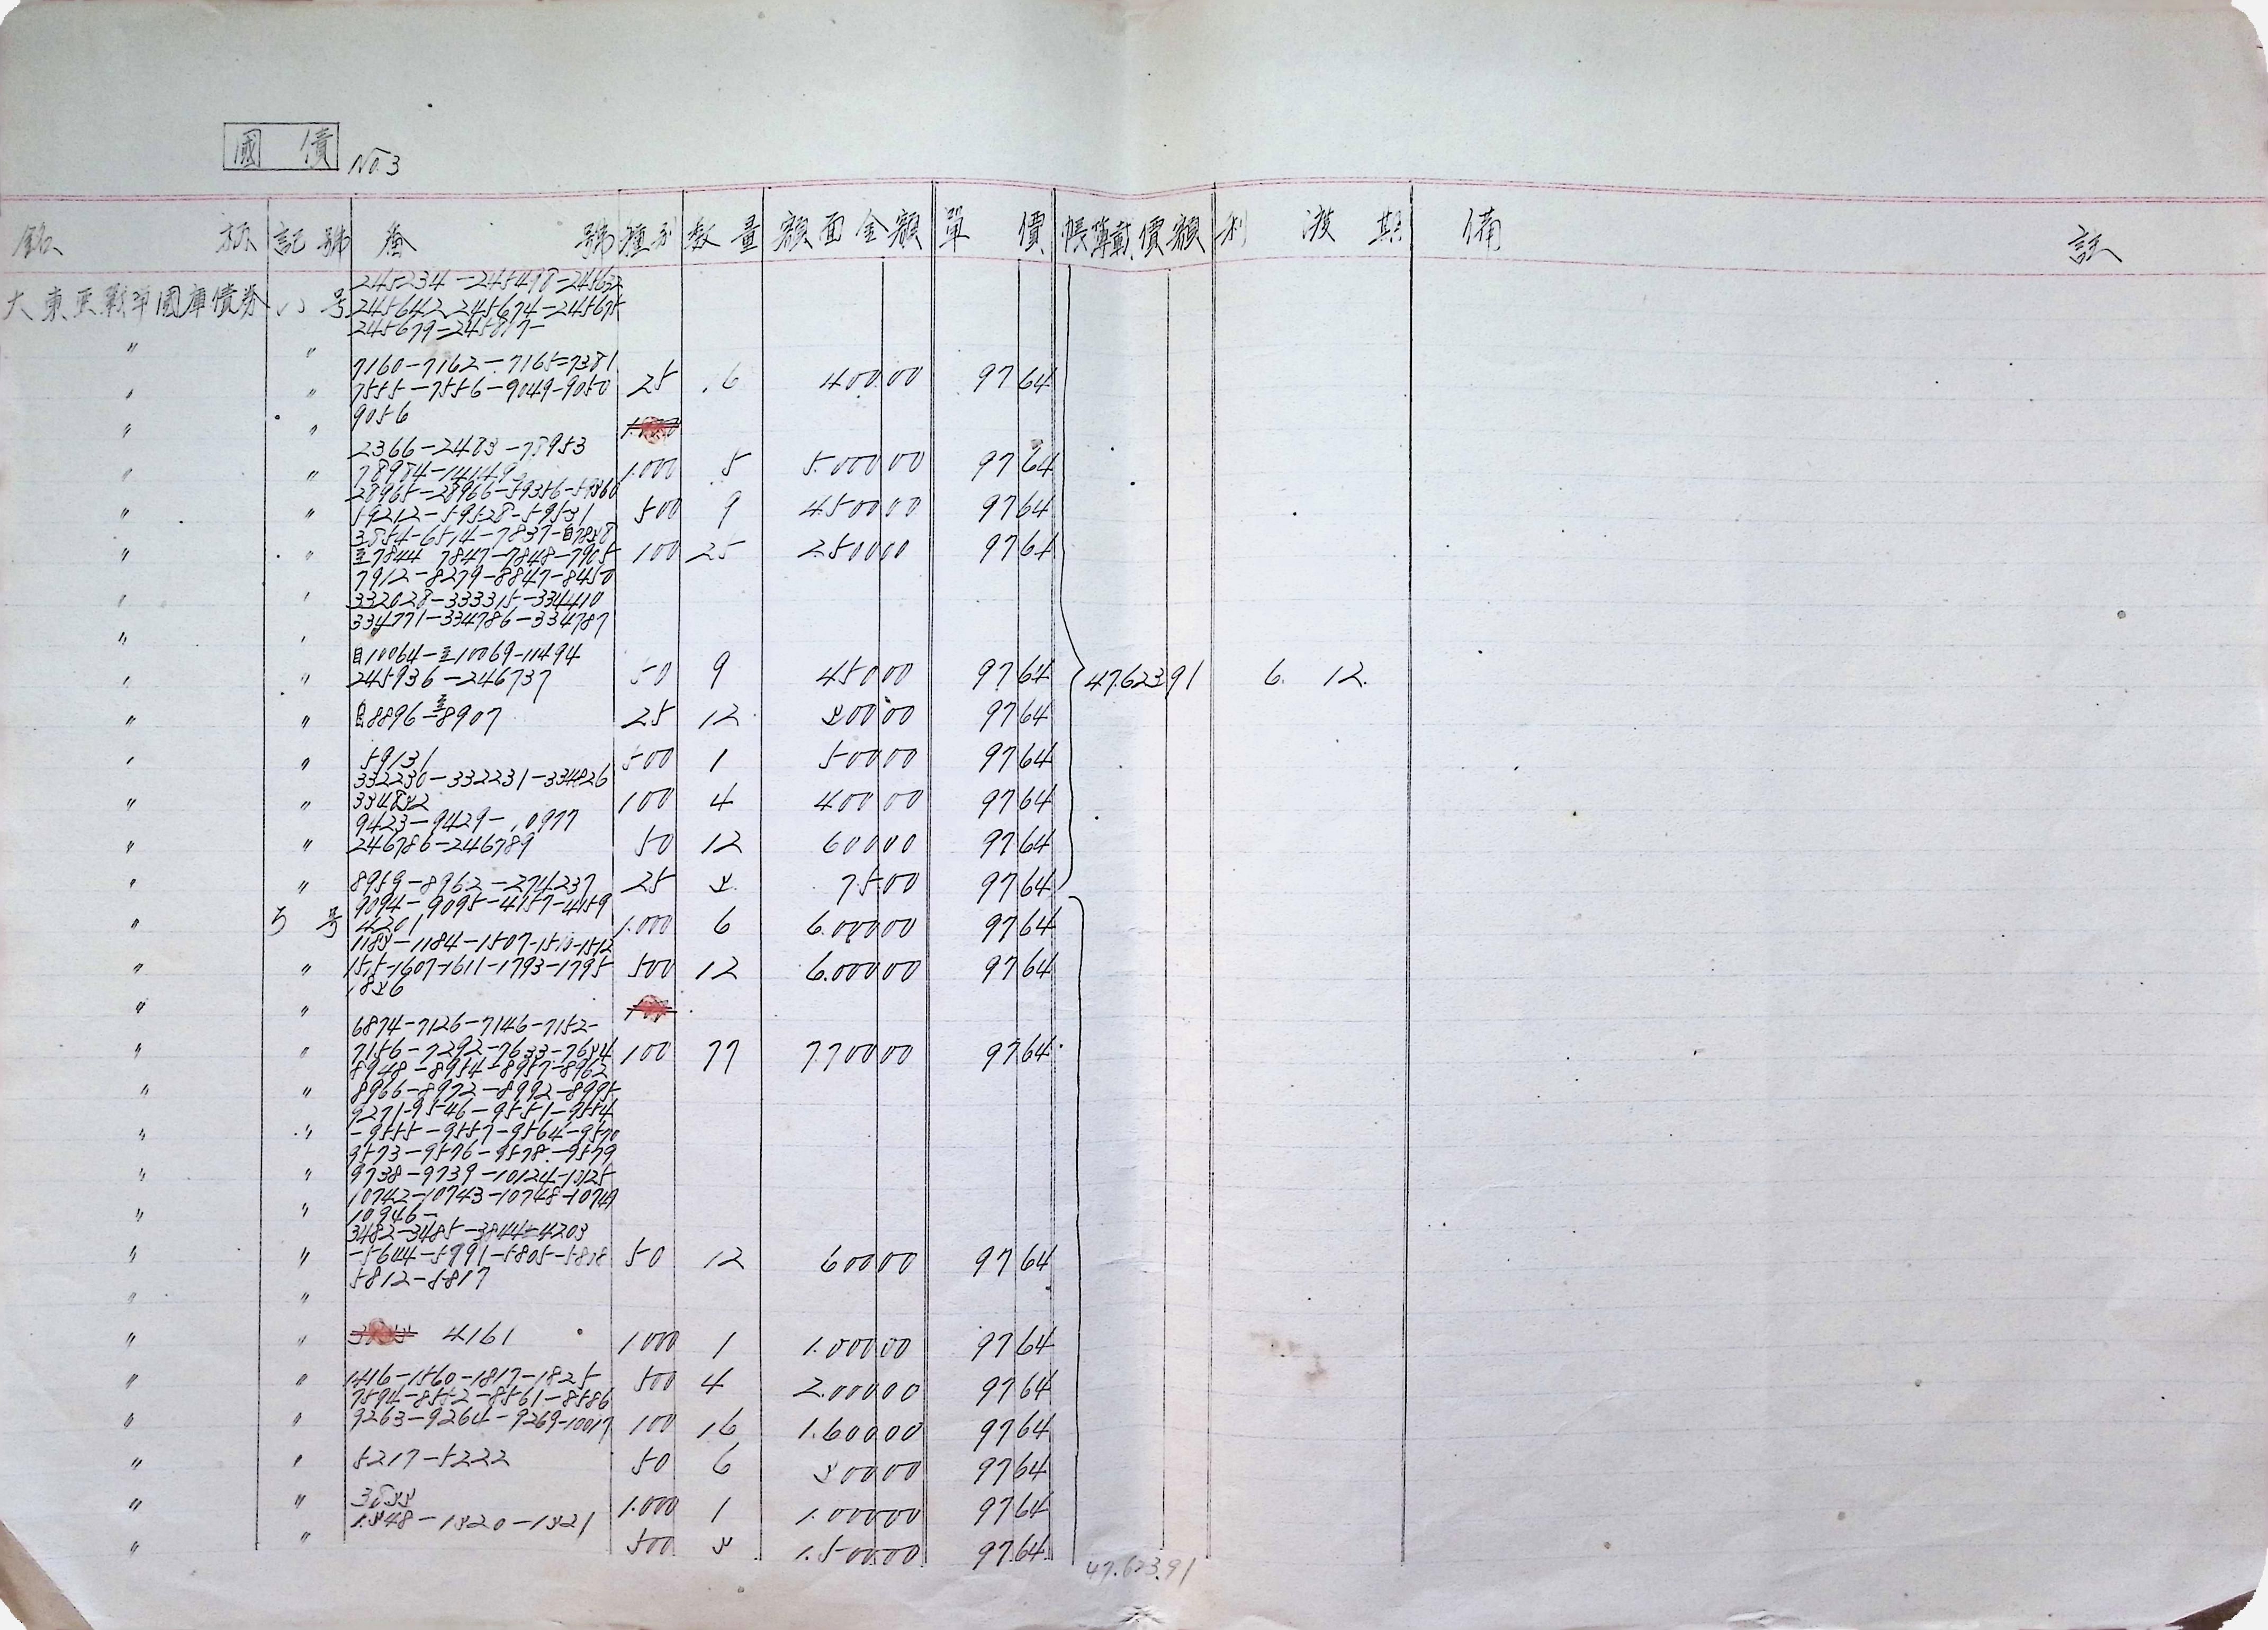 國債 No.3
銘柄 記號 番號 種別 数量 額面金額 單價 帳簿載價額 利渡期 備註
245234-245498-245632
大東亜戰争國庫債券 い号 245642 245674-245675
245679-245817-
〃 〃
7160-7162-7165-7381
〃 〃 7555-7556-9049-9050 25 16 400 00 97 64
9056
〃 〃
2366-2483-78953
〃 〃 78954-141149 1.000 5 5.000 00 97 64
28965-28966-59356-59360
〃 〃 59212-59528-59531 500 9 4500 00 97 64
3554-6514-7837-自7838
〃 〃 至7844 7847-7848-7905 100 25 2.500 00 97 64
7912-8279-8847-8450
〃 〃 332028-333315-334410
334771-334786-334787
〃 〃
自10064-至10069-11494
〃 〃 245936-246737 50 9 450 00 97 64 47.623 91 6. 12.
〃 〃 自8896-至8907 25 12 300 00 97 64
〃 〃 59131 500 1 500 00 97 64
332230-332231-334826
〃 〃 334832 100 4 400 00 97 64
9423-9429-10977
〃 〃 246786-246789 50 12 600 00 97 64
〃 〃 8959-8962-274237 25 3 75 00 97 64
9094-9095-4157-4159
〃 ろ号 4201 1.000 6 6.000 00 97 64
1183-1184-1507-1510-1512
〃 〃 1515-1607-1611-1793-1795 500 12 6.000 00 97 64
1836
〃 〃
6874-7126-7146-7152-
〃 〃 7156-7292-7633-7634 100 77 7.700 00 97 64
8948-8954-8957-8962
〃 〃 8966-8972-8992-8995
9271-9546-9551-9554
〃 〃 -9555-9557-9564-9570
9573-9576-9578-9579
〃 〃 9738-9739-10124-10125
10742-10743-10748-10749
〃 〃 10946-
3482-3485-3844-4203
〃 〃 -5644-5991-5805-5808 50 12 600 00 97 64
5812-5817
〃 〃
〃 〃 4161 1000 1 1.000 00 97 64
〃 〃 1416-1560-1817-1825 500 4 2.000 00 97 64
7594-8552-8561-8586
〃 〃 9263-9264-9269-10017 100 16 1.600 00 97 64
〃 〃 5217-5222 50 6 300 00 97 64
〃 〃 3533 1.000 1 1.000 00 97 64
1348-1320-1321
〃 〃 500 3 1.500 00 97 64
47.623.91